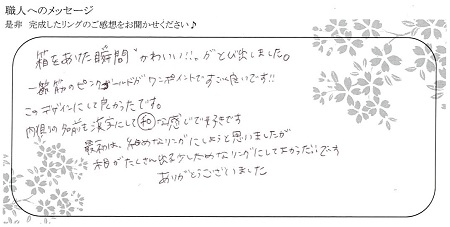 職人へのメッセージ
是非 完成したリングのご感想をお聞かせください♪
箱をあけた瞬間"かわいい!!"がとび出しました。
一筋のピンクゴールドがワンポイントですごい良いです!!
このデザインにして良かったです。
内側の名前を漢字にして㊒和な感じで好きです
最初は、細めなリングにしようと思いましたが
柄がたくさん出る少し太めなリングにしてよかったです
ありがとうございました